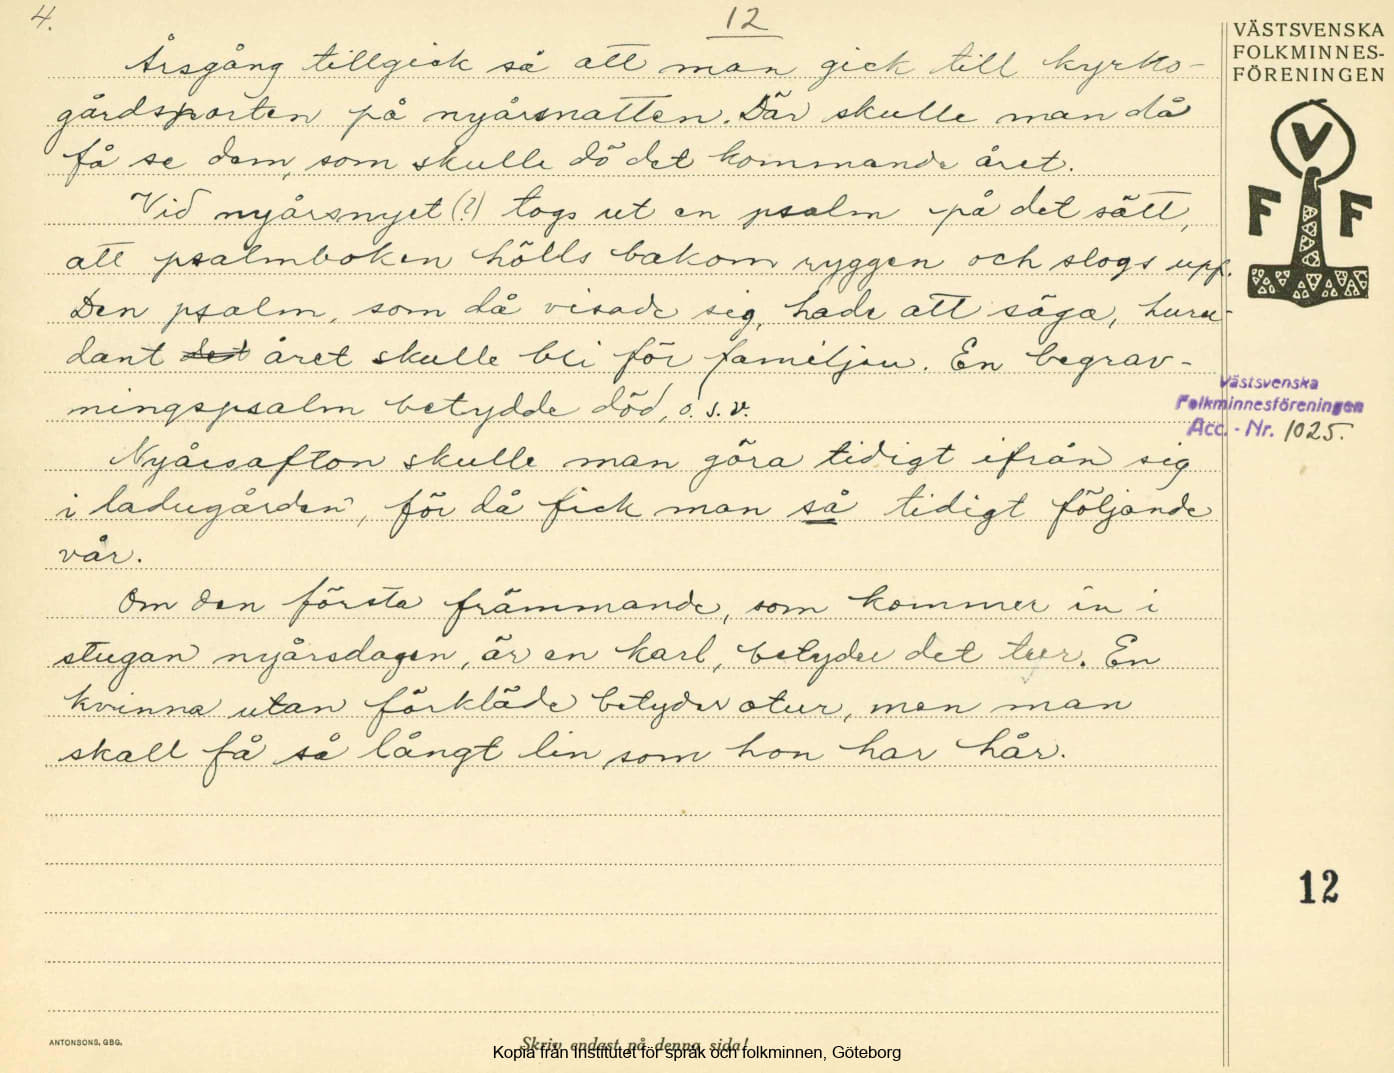 4.
12
Årsgång tillgick så att man gick till kyrko-
gårdsporten på nyårsnatten. Där skulle man då
få se dem, som skulle dö det kommande året.
Vid nyårsnyet (?) togs ut en psalm på det sätt,
att psalmboken hölls bakom ryggen och slogs upp.
Den psalm, som då visade sig, hade att säga, huru-
dant det året skulle bli för familjen. En begrav-
ningspsalm betydde död, o.s.v.
Nyårsafton skulle man göra tidigt ifrån sig
i ladugården, för då fick man så tidigt följande
vår.
Om den första främmande, som kommer in i
stugan nyårsdagen, är en karl, betyder det tur. En
kvinna utan förkläde betyder otur, men man
skall få så långt lin som hon har hår.
VÄSTSVENSKA
FOLKMINNES-
FÖRENINGEN
V
F F
Västsvenska
Folkminnesföreningen
Acc. - Nr. 1025.
12
ANTONSONS, GBG.
Skriv endast på denna sida!
Kopia från Institutet för språk och folkminnen, Göteborg